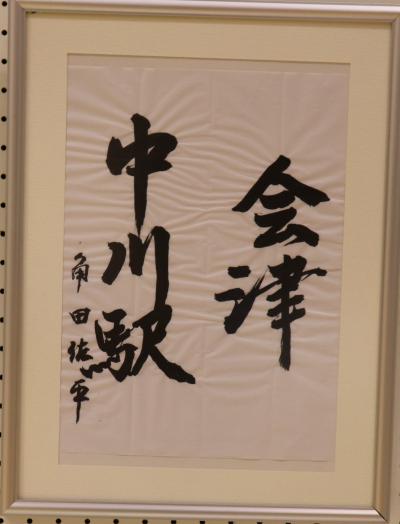 会津
中川駅
角田佐平